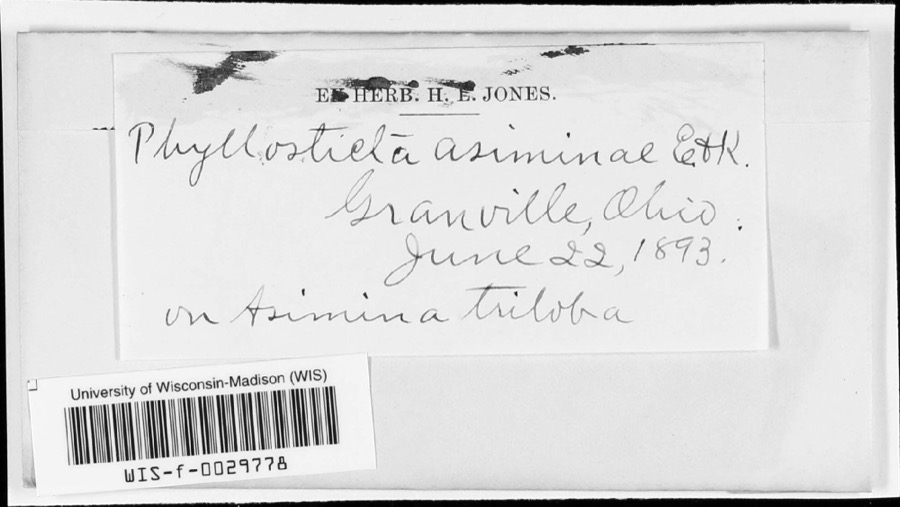 EX HERB. H. L. JONES.
Phyllosticta asiminae E.&K.
Granville, Ohio.
June 22, 1893.
on Asimina triloba
University of Wisconsin-Madison (WIS)
WIS-f-0029778